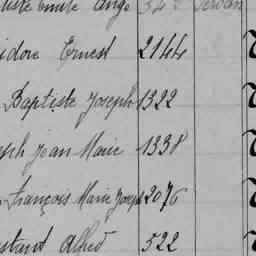 Emile Ange 342 Servan
idore Ernest 2144
Baptiste Joseph 1322
eph Jean Marie 1338
François Marie Joseph 2076
stant Alfred 522